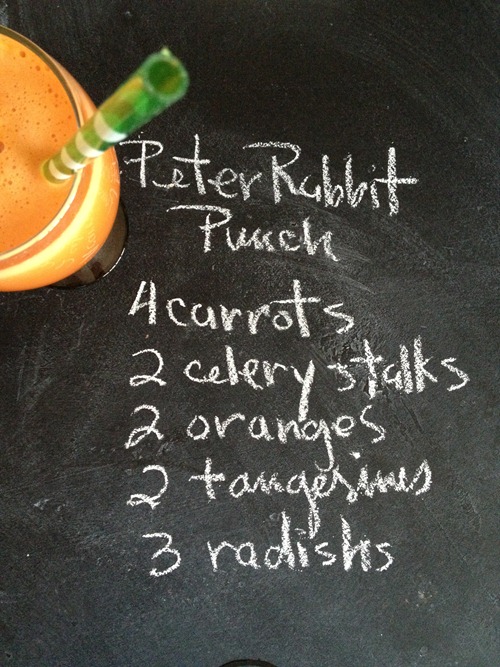 Peter Rabbit
Punch
4 carrots
2 celery stalks
2 oranges
2 tangerines
3 radishs